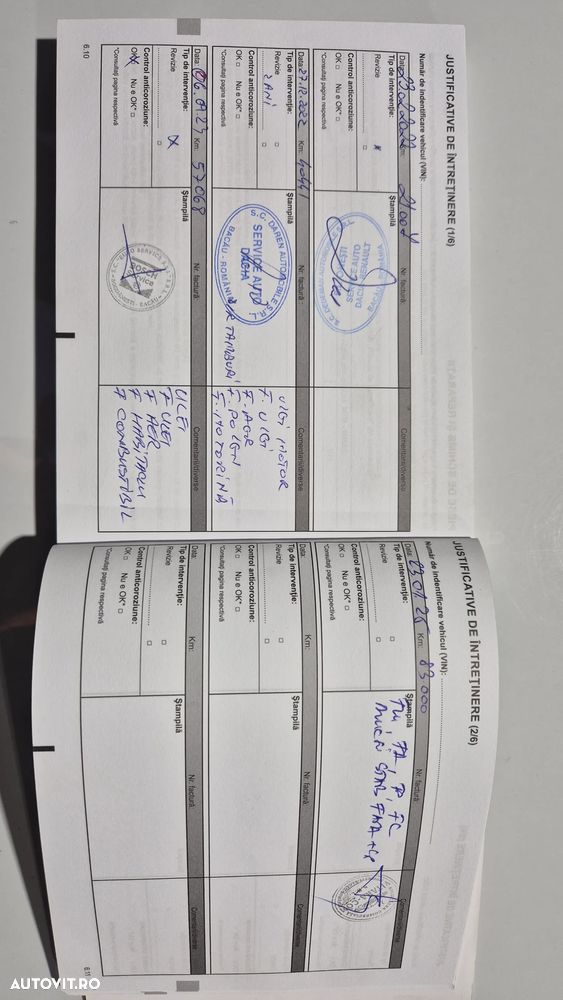 JUSTIFICATIVE DE ÎNTREȚINERE (1/6)
Număr de indentificare vehicul (VIN):
Data: 23.02.2022 Km: 21004
Tip de intervenție:
Revizie
Control anticoroziune:
OK Nu e OK*
*Consultați pagina respectivă
Ștampilă
Nr. factură:
Comentarii/diverse
Data: 27.12.2022 Km: 40441
Tip de intervenție:
Revizie
2 ANI
Control anticoroziune:
OK Nu e OK*
*Consultați pagina respectivă
Ștampilă
S.C. DAREN AUTOMOBILE S.R.L.
SERVICE AUTO
DACIA
BACĂU - ROMÂNIA
Nr. factură:
Comentarii/diverse
ULEI MOTOR
F. ULEI
F. AER
F. POLEN
F. MOTORINĂ
Data: 06.09.23 Km: 57068
Tip de intervenție:
Revizie
Control anticoroziune:
OK Nu e OK*
*Consultați pagina respectivă
Ștampilă
BOSCH
Service
Nr. factură:
Comentarii/diverse
ULEI
F ULEI
F AER
F HABITACLU
F COMBUSTIBIL
6.10
JUSTIFICATIVE DE ÎNTREȚINERE (2/6)
Număr de indentificare vehicul (VIN):
Data: Km: 83000
Tip de intervenție:
Revizie
Control anticoroziune:
OK Nu e OK*
*Consultați pagina respectivă
Ștampilă
Nr. factură:
Comentarii/diverse
Data: Km:
Tip de intervenție:
Revizie
Control anticoroziune:
OK Nu e OK*
*Consultați pagina respectivă
Ștampilă
Nr. factură:
Comentarii/diverse
Data: Km:
Tip de intervenție:
Revizie
Control anticoroziune:
OK Nu e OK*
*Consultați pagina respectivă
Ștampilă
Nr. factură:
Comentarii/diverse
6.11
AUTOVIT.RO